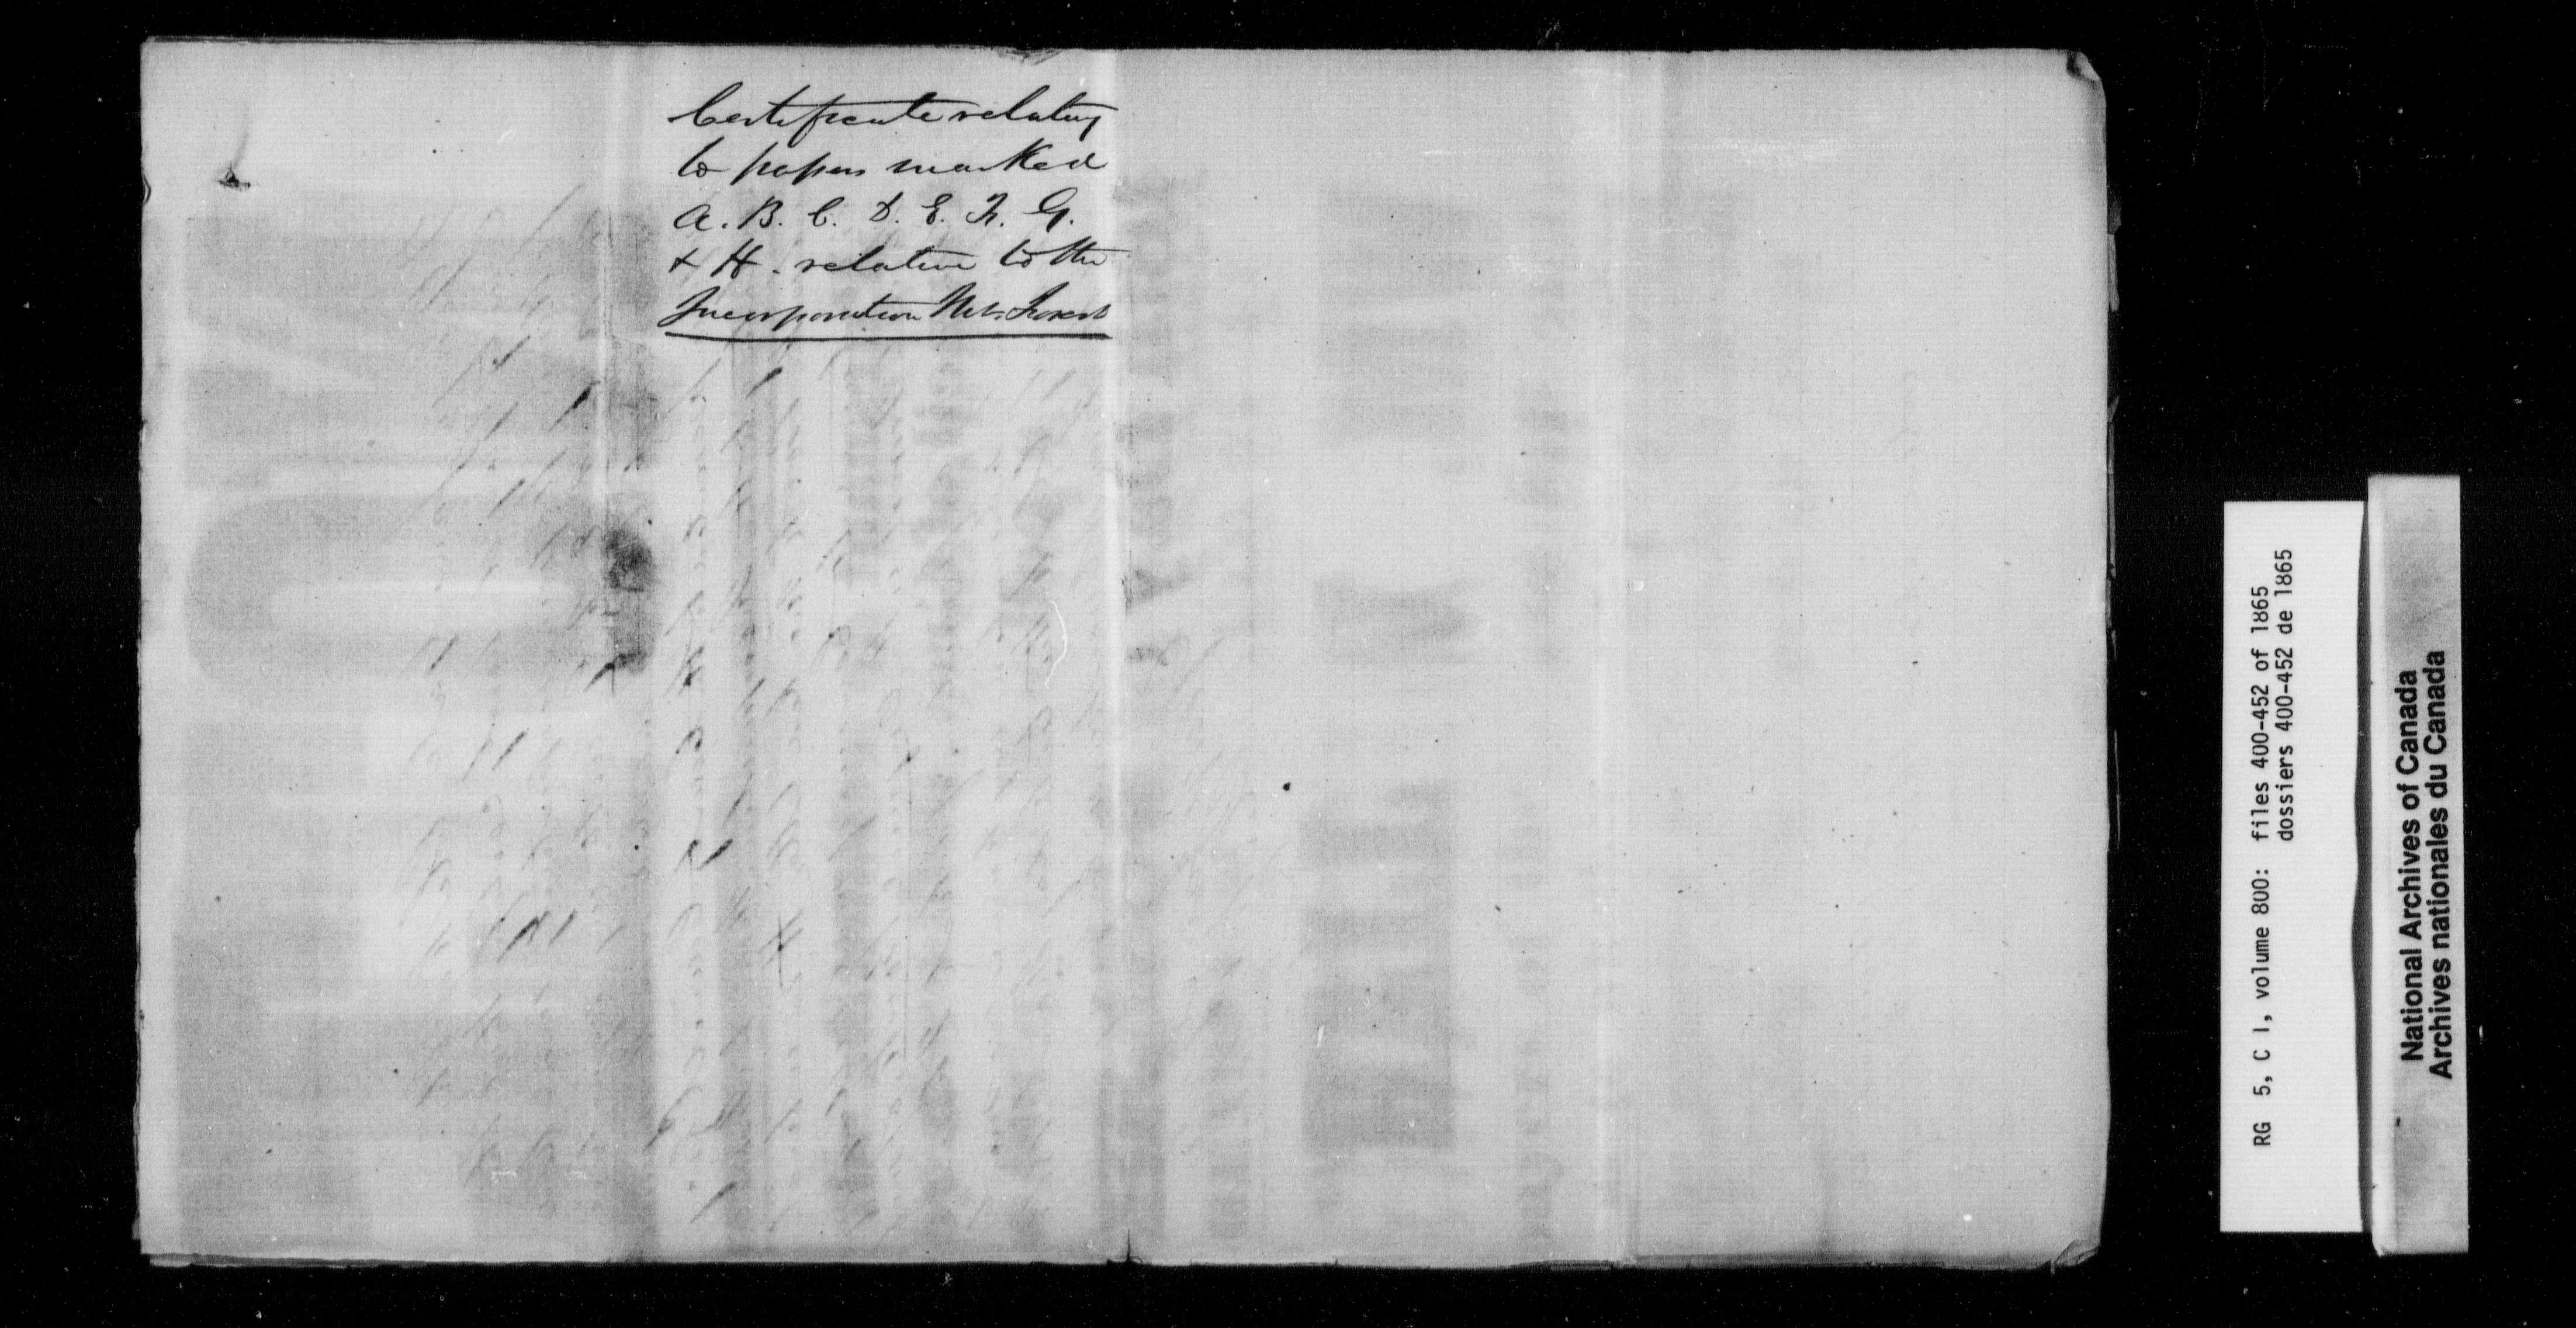 Certificate relating
to papers marked
A. B. C. D. E. F. G.
& H. relative to the
Incorporation Mt. Forest
RG 5, C 1, volume 800: files 400-452 of 1865
dossiers 400-452 de 1865
National Archives of Canada
Archives nationales du Canada